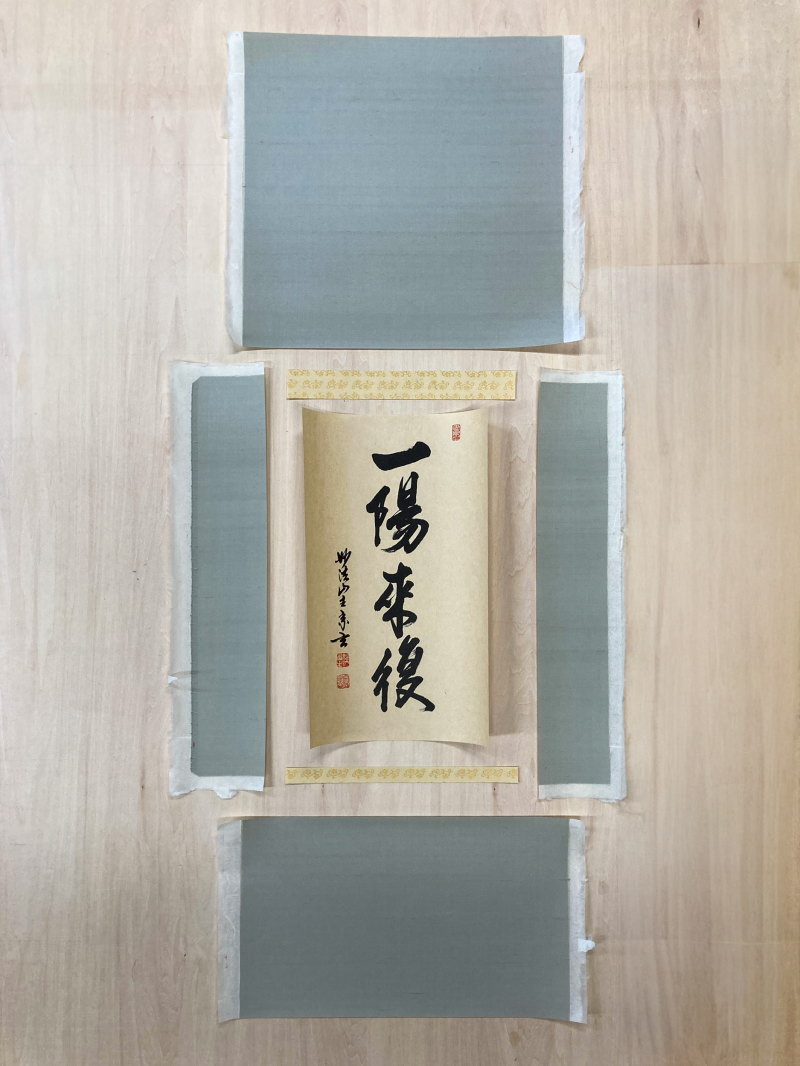 一陽来復
妙法山主泰玄